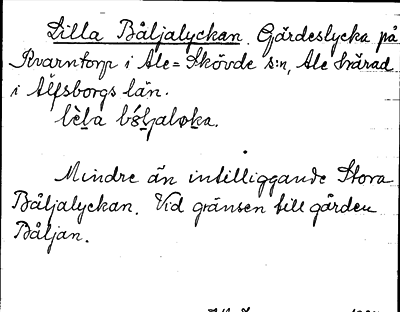 Lilla Båljalyckan. Gärdeslycka på
Kvarntorp i Ale=Skövde s:n, Ale härad
i Älfsborgs län.
Mindre än intilliggande Stora
Båljalyckan. Vid gränsen till gården
Båljan.